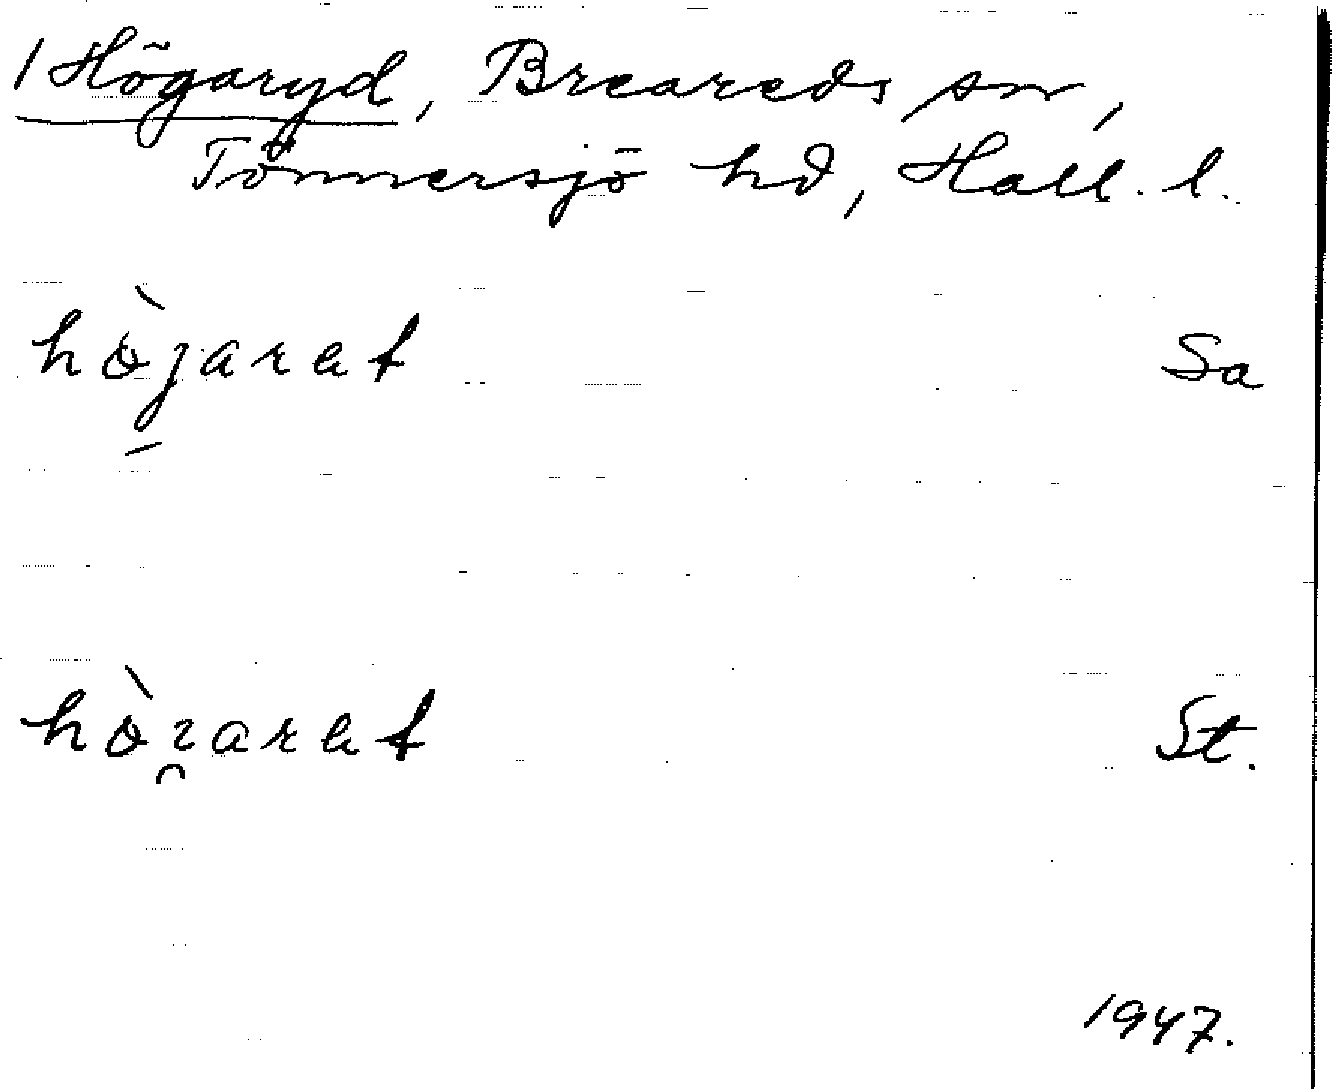 1 Högaryd, Breareds sn,
Tönnersjö hd, Hall. l.
hò̀jarat Sa
hò̀ɿarat St.
1947.